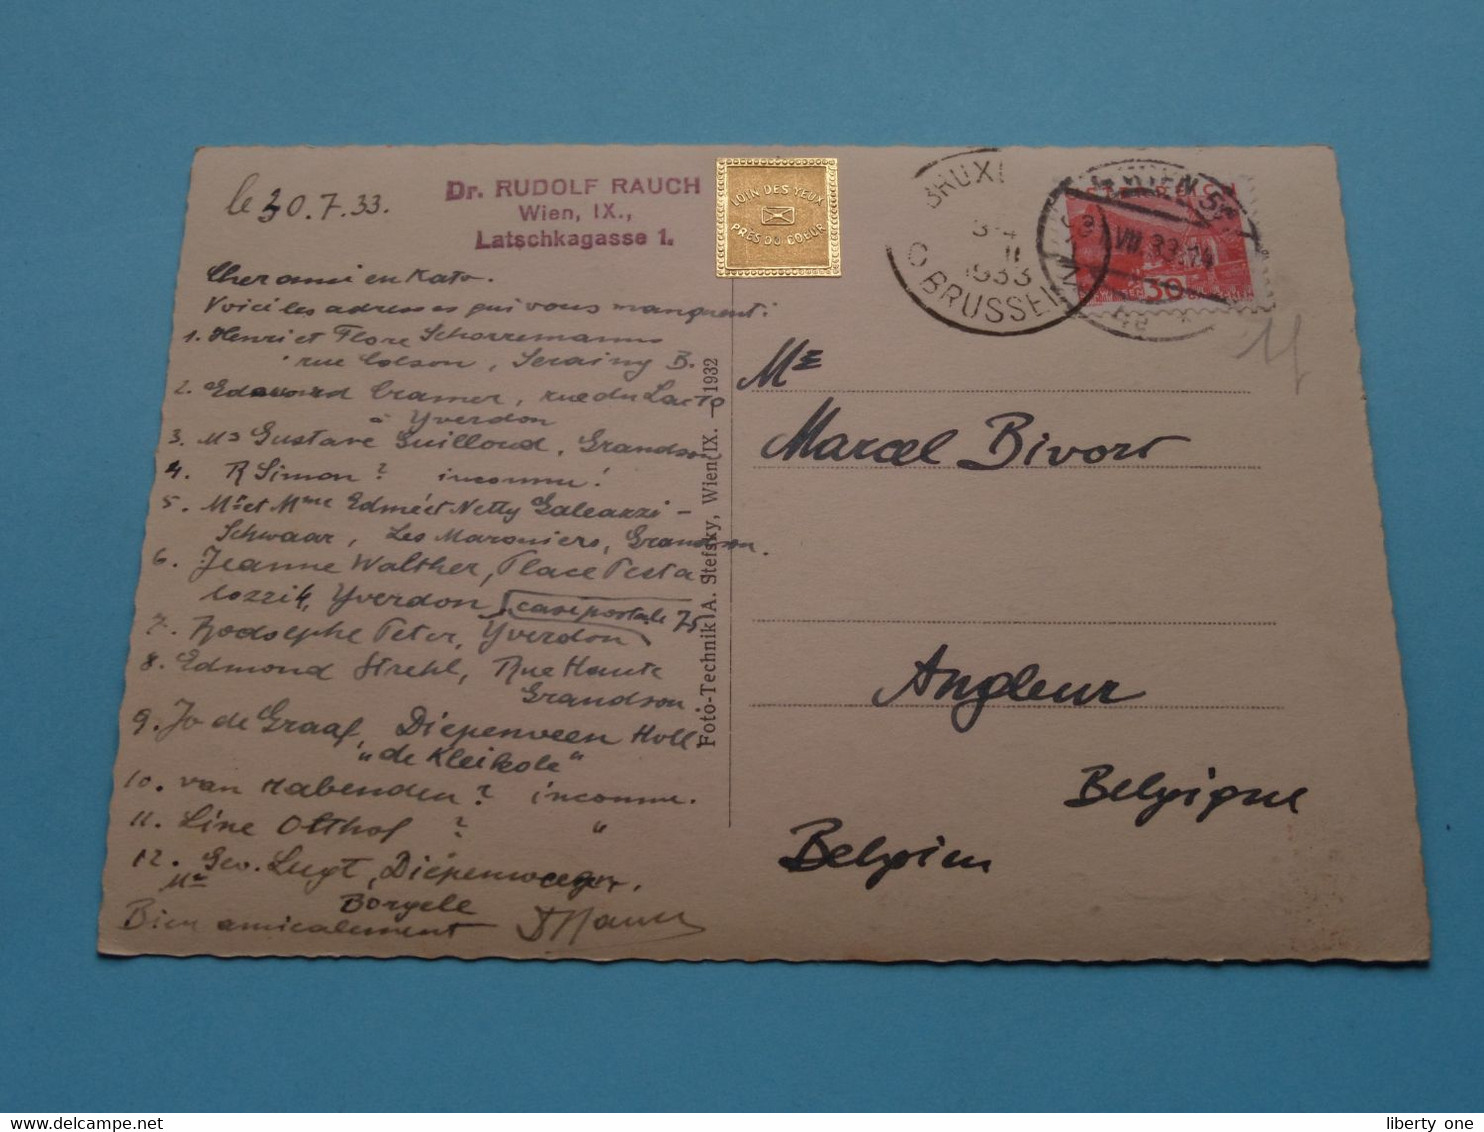 le 30.7.33.
Dr. RUDOLF RAUCH
Wien, IX.,
Latschkagasse 1.
LOIN DES YEUX
PRÈS DU COEUR
Cher ami en Kato.
Voici les adresses qui vous manquent:
1. Henri et Flore Schorremans
rue Colson, Seraing B.
2. Edouard Cramer, rue du Lac
à Yverdon
3. Mr Gustave Guilloud, Grandson
4. R Simon? inconnu!
5. Mr et Mme Edmé et Netty Galeazzi-
Schwaar, Les Maroniers, Grandson.
6. Jeanne Walther, Place Pesta
lozzi 4, Yverdon case postale 75
7. Rodolphe Peter, Yverdon
8. Edmond Strehl, Rue Haute
Grandson
9. Jo de Graaf, Diepenveen Holl
"de Kleikole"
10. van rabenden? inconnu.
11. Line Olthof ? "
12. Geo. Lugt, Diepenveen.
Me Borgele
Bien amicalement
Foto-Technik A. Stefsky, Wien IX. — 1932
BRUX
3-4
1933
BRUSSEL
WIEN
VII 33
30
Me
Marcel Bivort
Angleur
Belgique
Belgien
liberty one